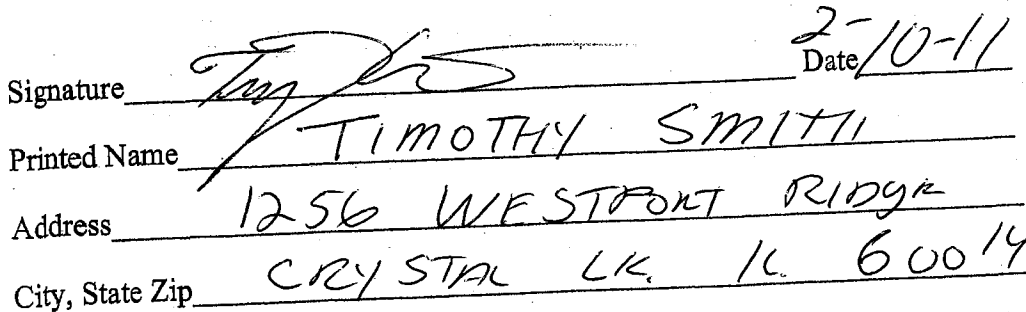 Signature Date 2-10-11
Printed Name TIMOTHY SMITH
Address 1256 WESTPORT RIDGE
City, State Zip CRYSTAL LK. IL. 60014